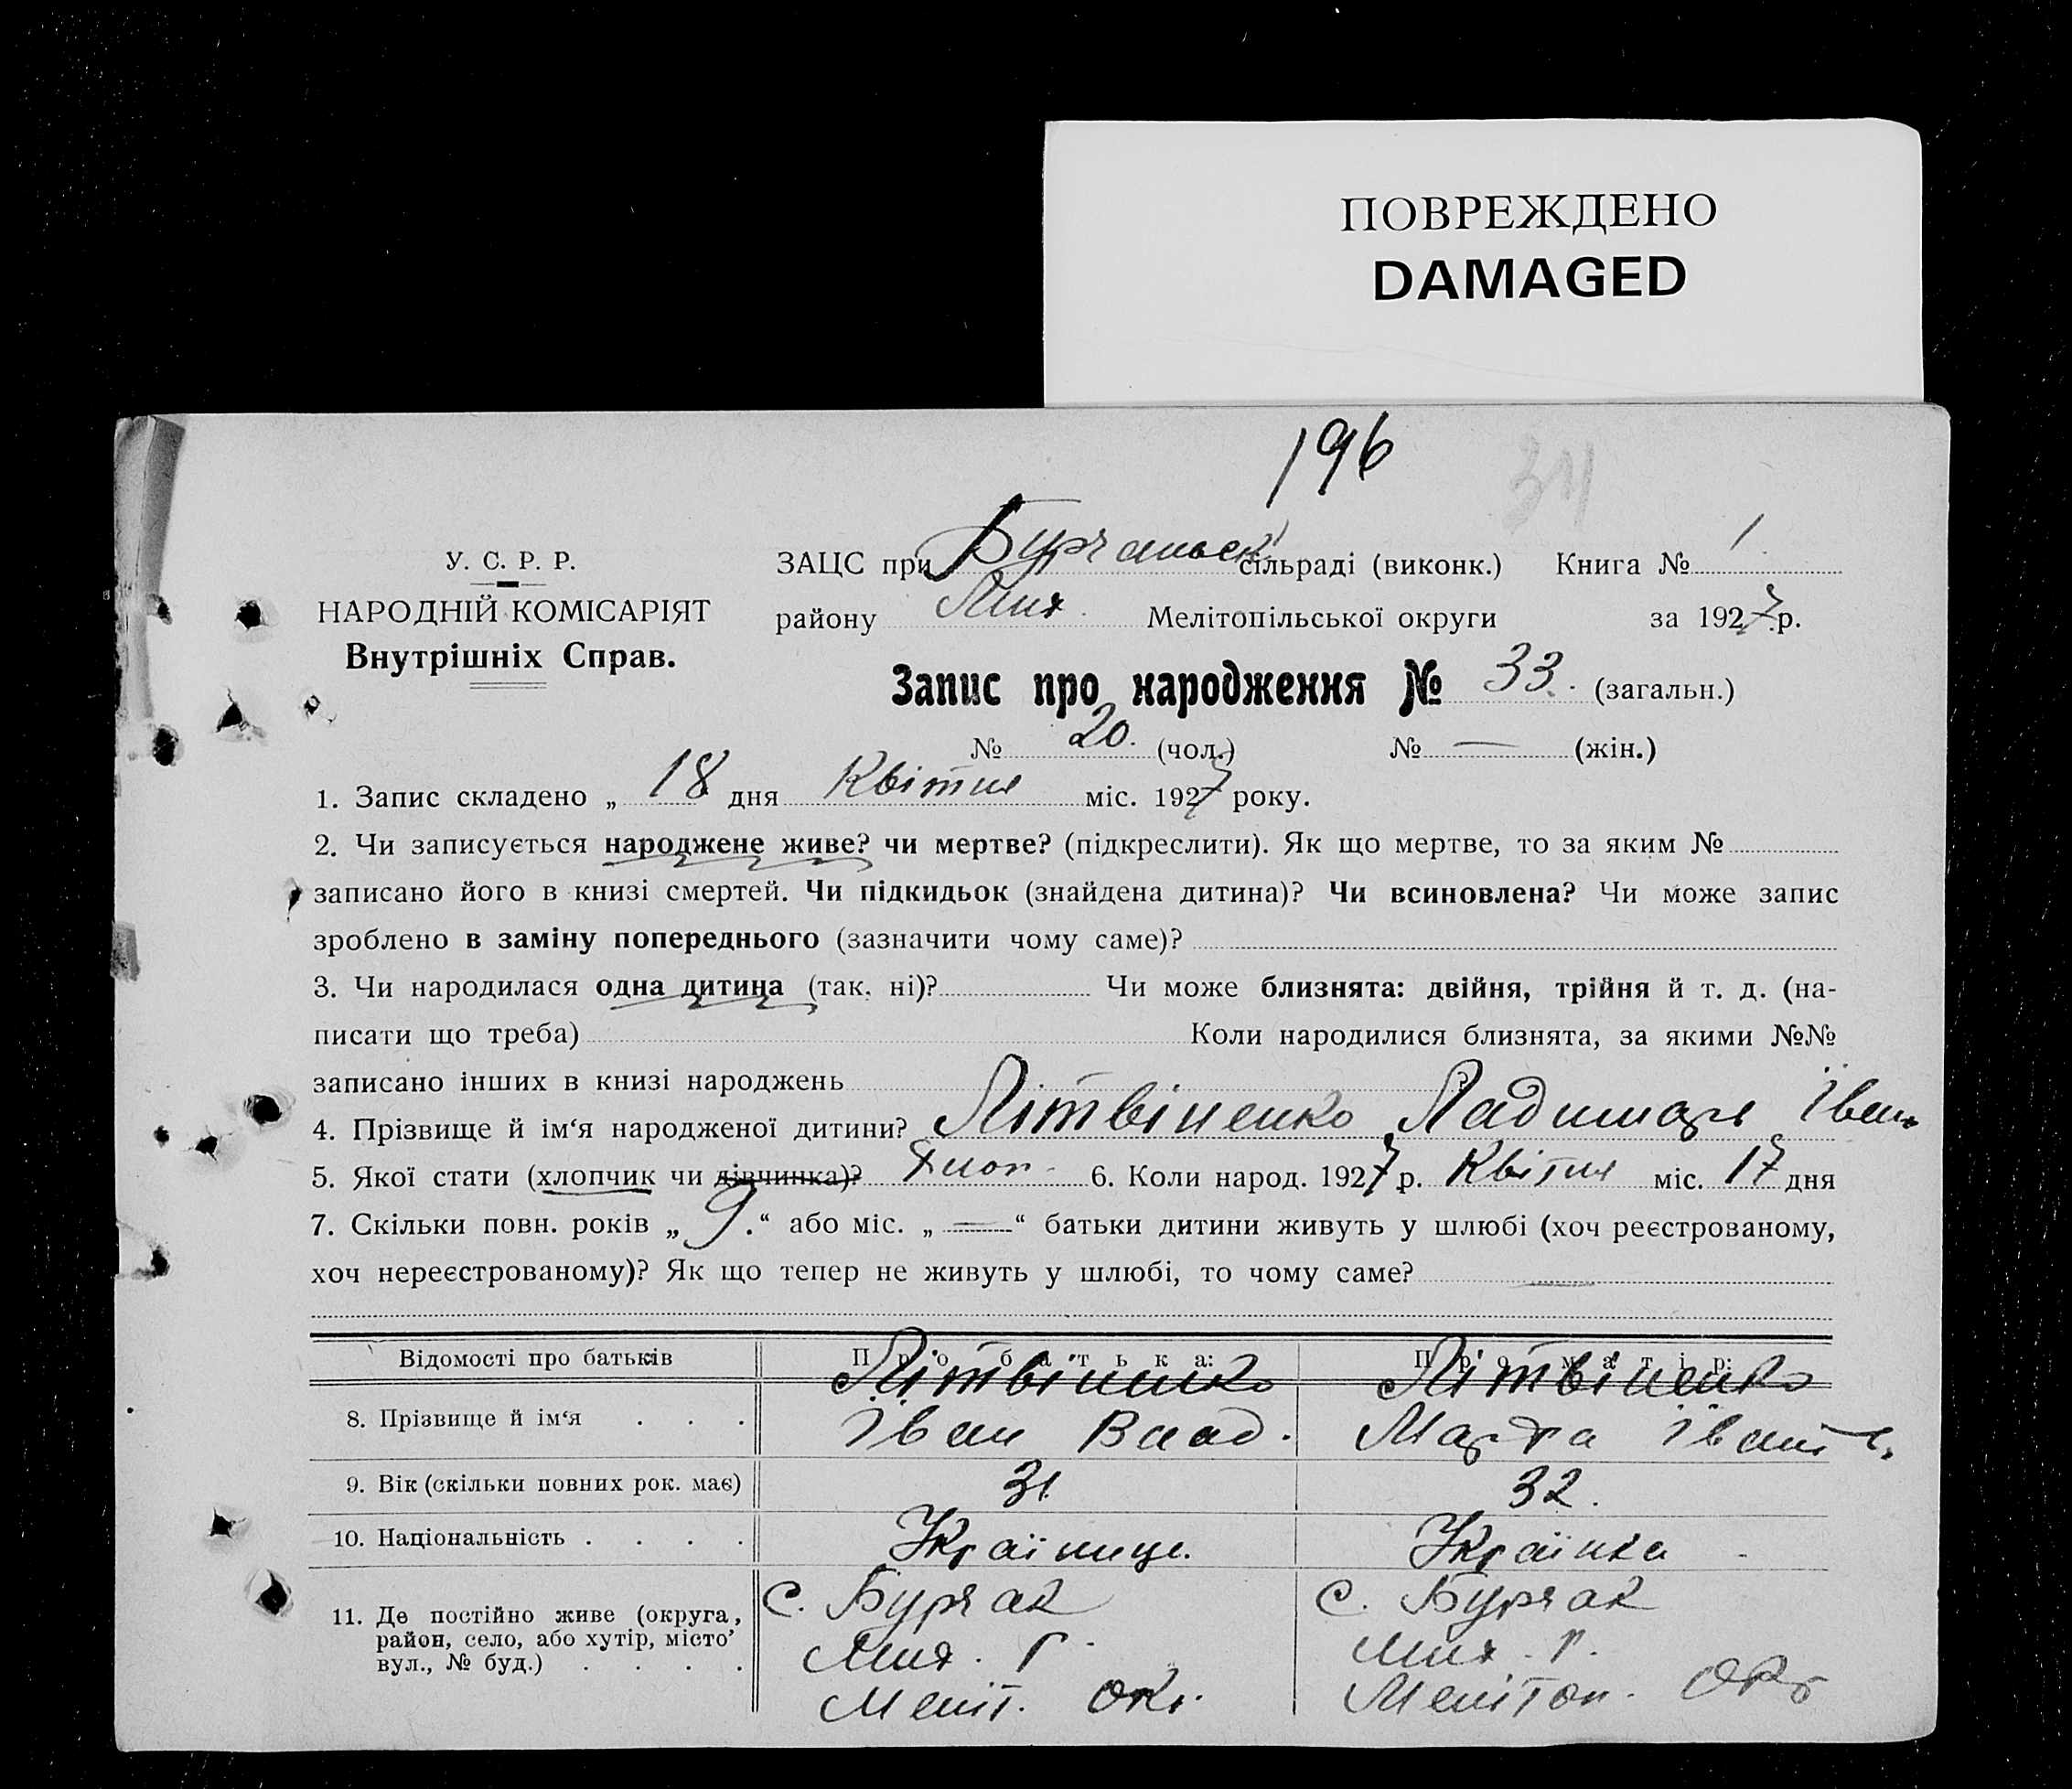 ПОВРЕЖДЕНО
DAMAGED
196
У. С. Р. Р.
НАРОДНІЙ КОМІСАРІЯТ
Внутрішніх Справ.
ЗАЦС при Бурчаськ. сільраді (виконк.) Книга № 1.
району Мих. Мелітопільської округи за 1927 р.
Запис про народження № 33. (загальн.)
№ 20. (чол.) № — (жін.)
1. Запис складено „ 18 дня Квітня міс. 1927 року.
2. Чи записується народжене живе? чи мертве? (підкреслити). Як що мертве, то за яким №
записано його в книзі смертей. Чи підкидьок (знайдена дитина)? Чи всиновлена? Чи може запис
зроблено в заміну попереднього (зазначити чому саме)?
3. Чи народилася одна дитина (так. ні)? Чи може близнята: двійня, трійня й т. д. (на-
писати що треба) Коли народилися близнята, за якими №№
записано інших в книзі народжень ?
4. Прізвище й ім‘я народженої дитини? Літвіненко Іван
5. Якої стати (хлопчик чи дівчинка)? Хлоп. 6. Коли народ. 1927 р. Квітня міс. 17 дня
7. Скільки повн. років „ 9.“ або міс. „ — “ батьки дитини живуть у шлюбі (хоч реєстрованому,
хоч нереєстрованому)? Як що тепер не живуть у шлюбі, то чому саме? —
Відомості про батьків Про батька: Про матір:
8. Прізвище й ім‘я . . . Літвіненко Літвіненко
Іван Влад. Марта Іванів.
9. Вік (скільки повних рок. має) 31. 32.
10. Національність . . . . Українець. Українка
11. Де постійно живе (округа, район, село, або хутір, місто’ вул., № буд.) . . . .
с. Бурчак с. Бурчак
Мих. р. Мих. р.
Меліт. окр. Мелітоп. окр